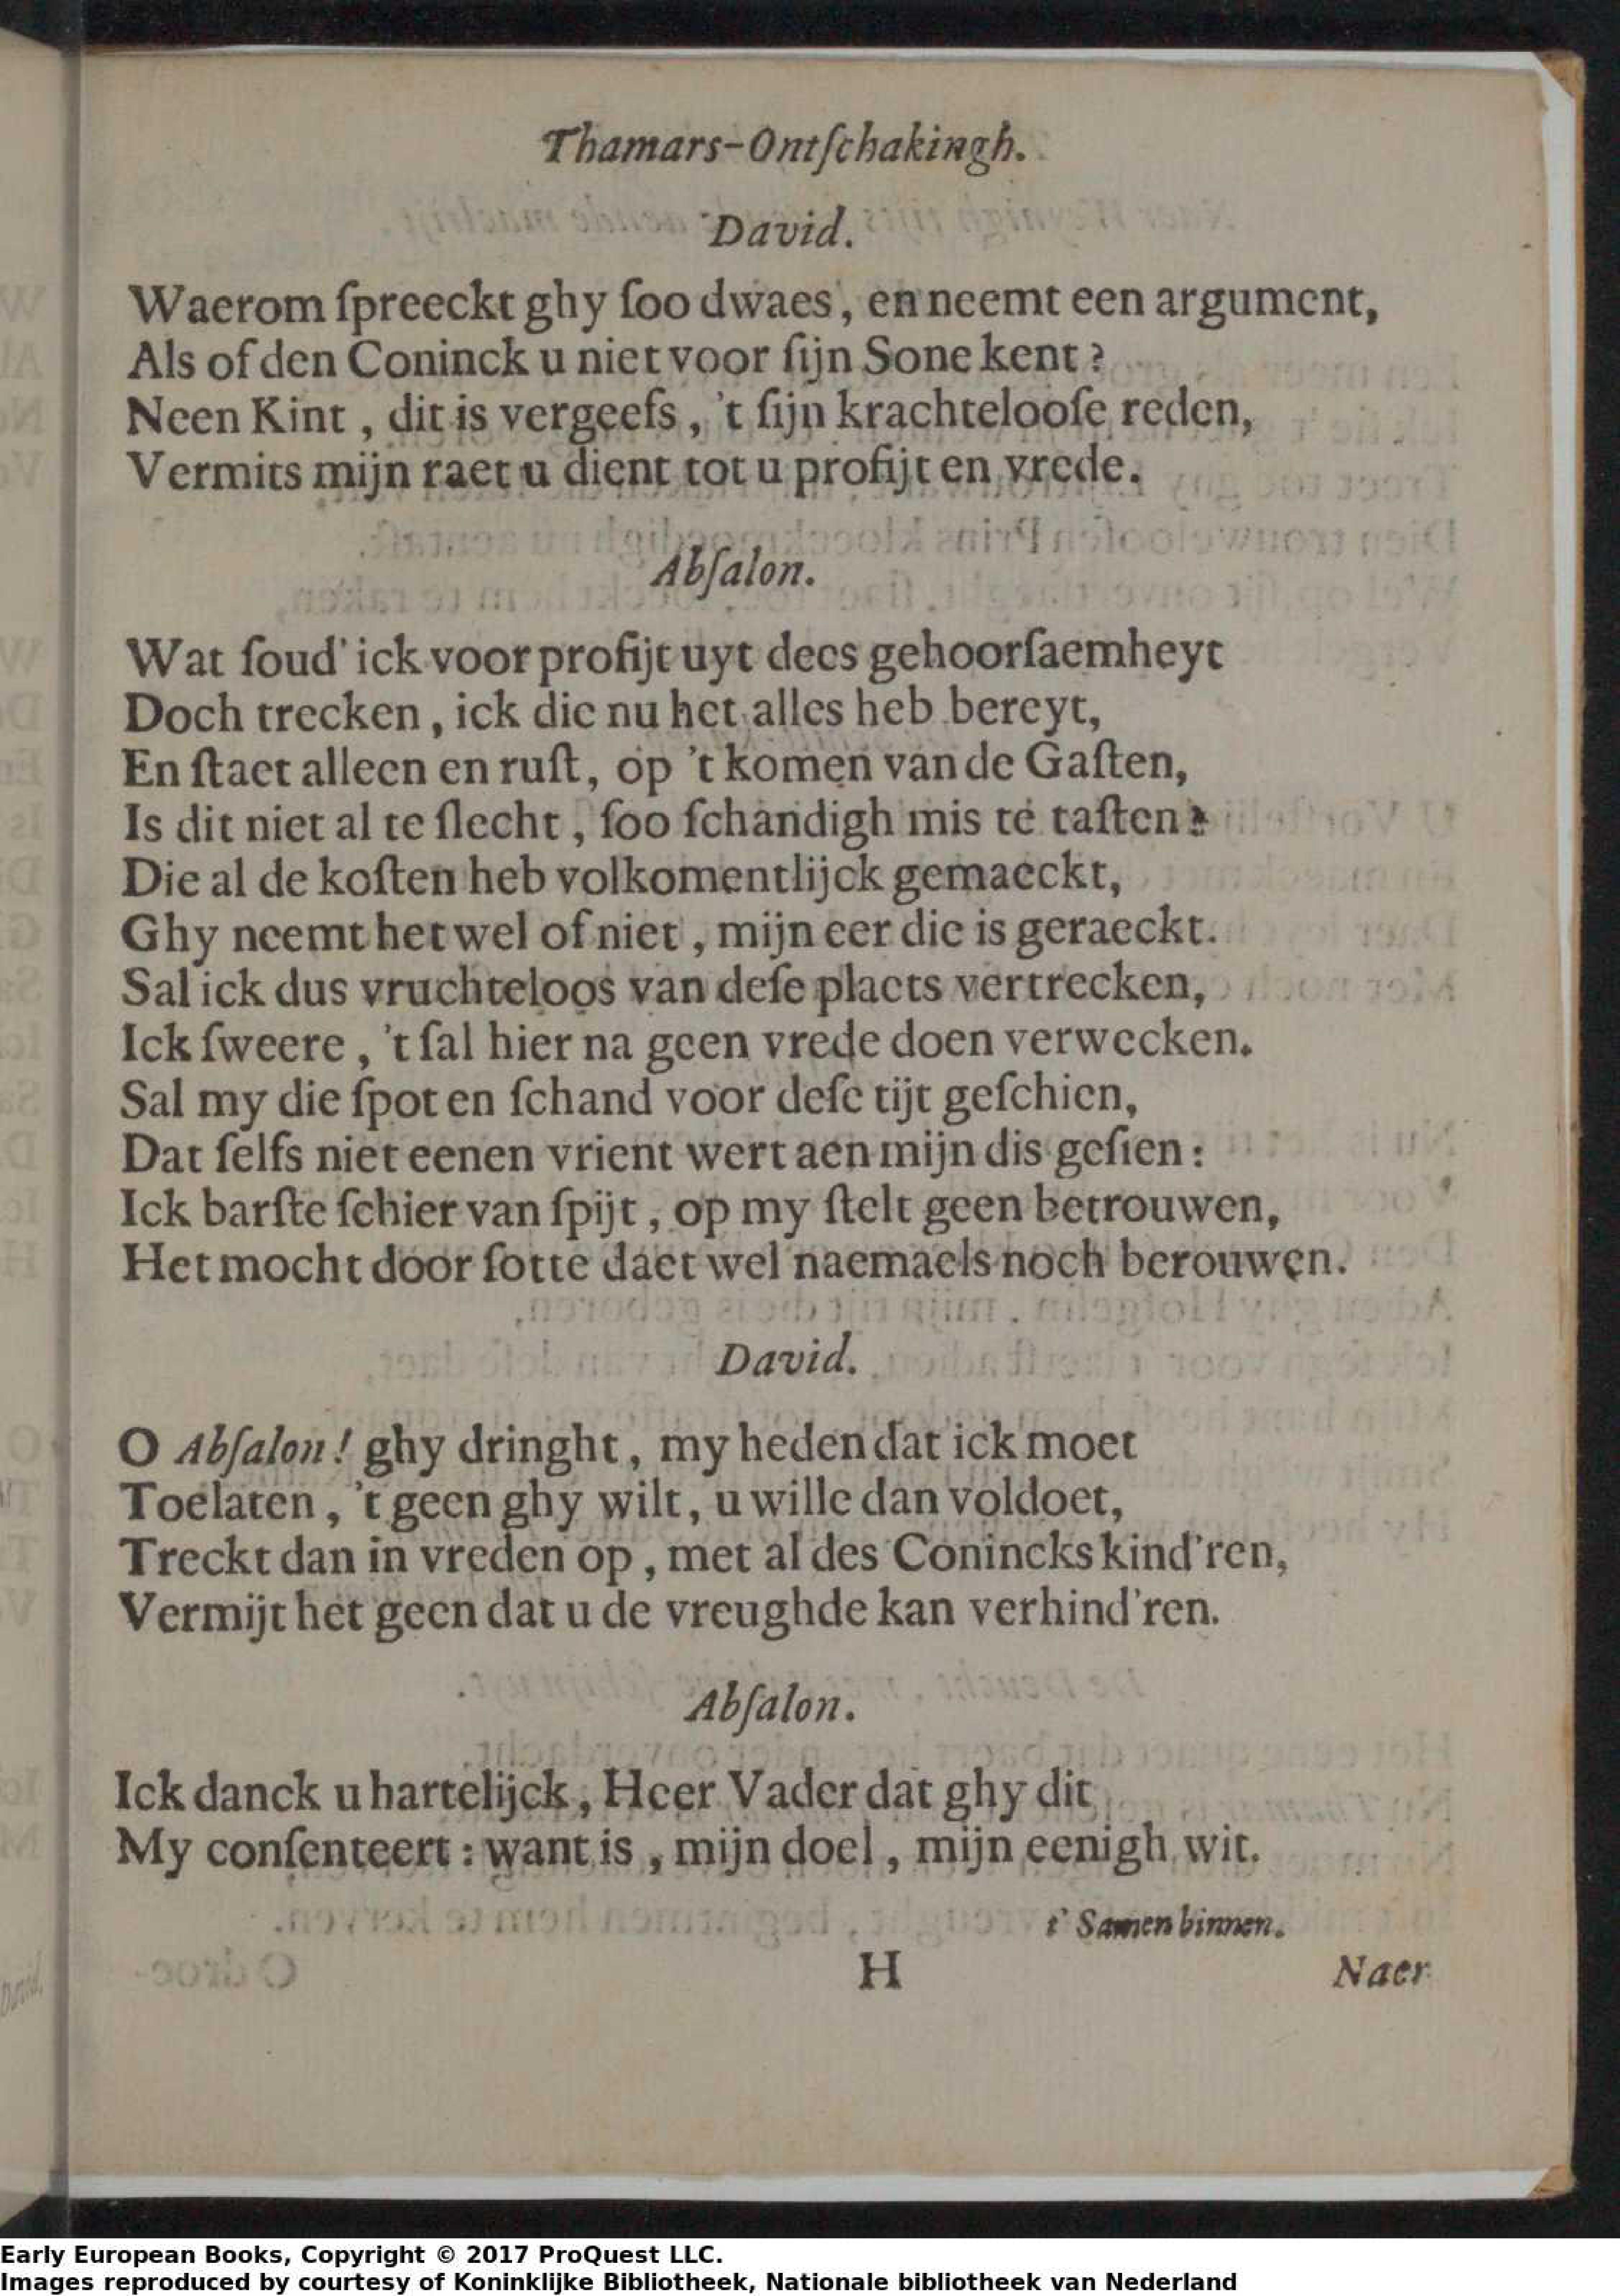 Thamars-Ontſchakingh.
David.
Waerom ſpreeckt ghy ſoo dwaes, en neemt een argument,
Als of den Coninck u niet voor ſijn Sone kent?
Neen Kint, dit is vergeefs, 't ſijn krachtelooſe reden,
Vermits mijn raet u dient tot u profijt en vrede.
Abſalon.
Wat ſoud' ick voor profijt uyt dees gehoorſaemheyt
Doch trecken, ick die nu het alles heb bereyt,
En ſtaet alleen en ruſt, op 't komen van de Gaſten,
Is dit niet al te ſlecht, ſoo ſchandigh mis te taſten?
Die al de koſten heb volkomentlijck gemaeckt,
Ghy neemt het wel of niet, mijn eer die is geraeckt.
Sal ick dus vruchteloos van deſe plaets vertrecken,
Ick ſweere, 't ſal hier na geen vrede doen verwecken.
Sal my die ſpot en ſchand voor deſe tijt geſchien,
Dat ſelfs niet eenen vrient wert aen mijn dis geſien:
Ick barſte ſchier van ſpijt, op my ſtelt geen betrouwen,
Het mocht door ſotte daet wel naemaels noch berouwen.
David.
O Abſalon! ghy dringht, my heden dat ick moet
Toelaten, 't geen ghy wilt, u wille dan voldoet,
Treckt dan in vreden op, met al des Conincks kind'ren,
Vermijt het geen dat u de vreughde kan verhind'ren.
Abſalon.
Ick danck u hartelijck, Heer Vader dat ghy dit
My conſenteert: want is, mijn doel, mijn eenigh wit.
t' Samen binnen.
H Naer
Early European Books, Copyright © 2017 ProQuest LLC.
Images reproduced by courtesy of Koninklijke Bibliotheek, Nationale bibliotheek van Nederland